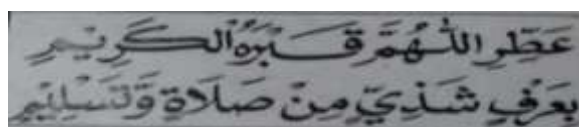 عَطِّرِ اللّٰهُمَّ قَبْرَهُ الْكَرِيْمِ
بِعَرْفٍ شَذِيٍّ مِنْ صَلَاةٍ وَتَسْلِيْمٍ